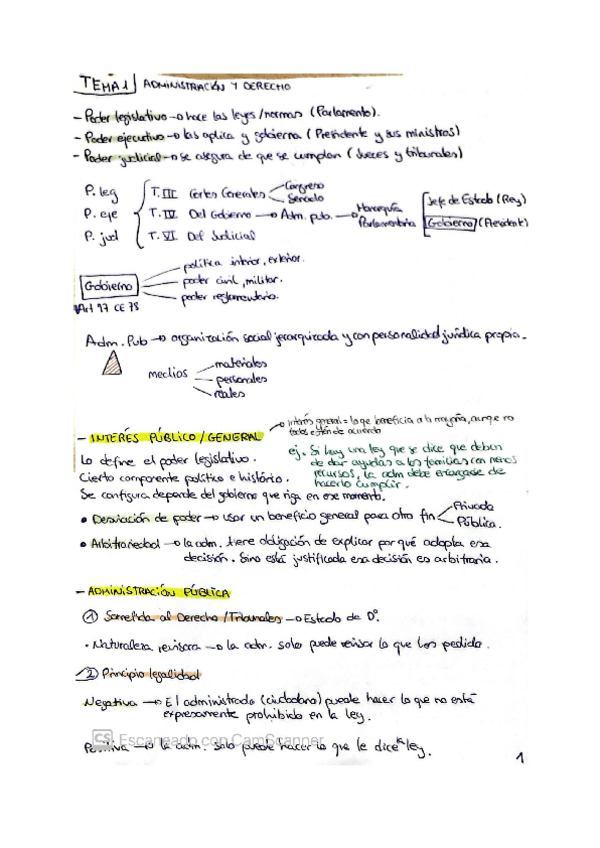 TEMA 1 ADMINISTRACIÓN Y DERECHO
- Poder legislativo → hace las leyes/normas (Parlamento).
- Poder ejecutivo → las aplica y gobierna (Presidente y sus ministros)
- Poder judicial → se asegura de que se cumplan (Jueces y tribunales)
P. leg T. III Cortes Generales Congreso Senado
P. eje T. IV Del Gobierno → Adm. pub. → Monarquía Parlamentaria Jefe de Estado (Rey) Gobierno (Presidente)
P. jud T. VI Del Judicial
Gobierno
política interior, exterior.
poder civil, militar.
poder reglamentario.
Art 97 CE 78
Adm. Pub → organización social jerarquizada y con personalidad jurídica propia.
medios
materiales
personales
reales
- INTERÉS PÚBLICO/GENERAL
interés general = lo que beneficia a la mayoría, aunque no
todos estén de acuerdo
Lo define el poder legislativo.
Cierto componente político e histório.
Se configura depende del gobierno que rija en ese momento.
ej. Si hay una ley que se dice que deben
de dar ayudas a las familias con menos
recursos, la adm debe encargarse de
hacerlo cumplir.
• Desviación de poder → usar un beneficio general para otro fin Privada Pública.
• Arbitrariedad → la adm. tiene obligación de explicar por qué adopta esa
decisión. Sino está justificada esa decisión es arbitraria.
- ADMINISTRACIÓN PÚBLICA
① Sometida al Derecho/Tribunales → Estado de Dº.
• Naturaleza revisora → la adm. solo puede revisar lo que has pedido.
② Principio legalidad
Negativa → El administrado (ciudadano) puede hacer lo que no está
expresamente prohibido en la ley.
Positiva → la adm. solo puede hacer lo que le dice la ley.
CS Escaneado con CamScanner
1